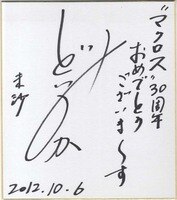 "マクロス"30周年
おめでとう
ございま〜す
未沙
2012.10.6